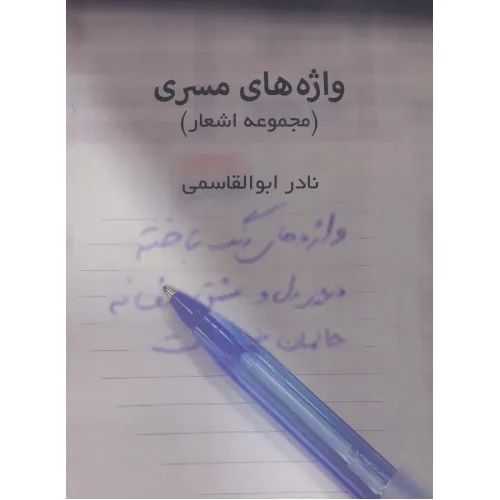 واژه های مسری
(مجموعه اشعار)
نادر ابوالقاسمی
واژه‌های رنگ باخته
و عشق